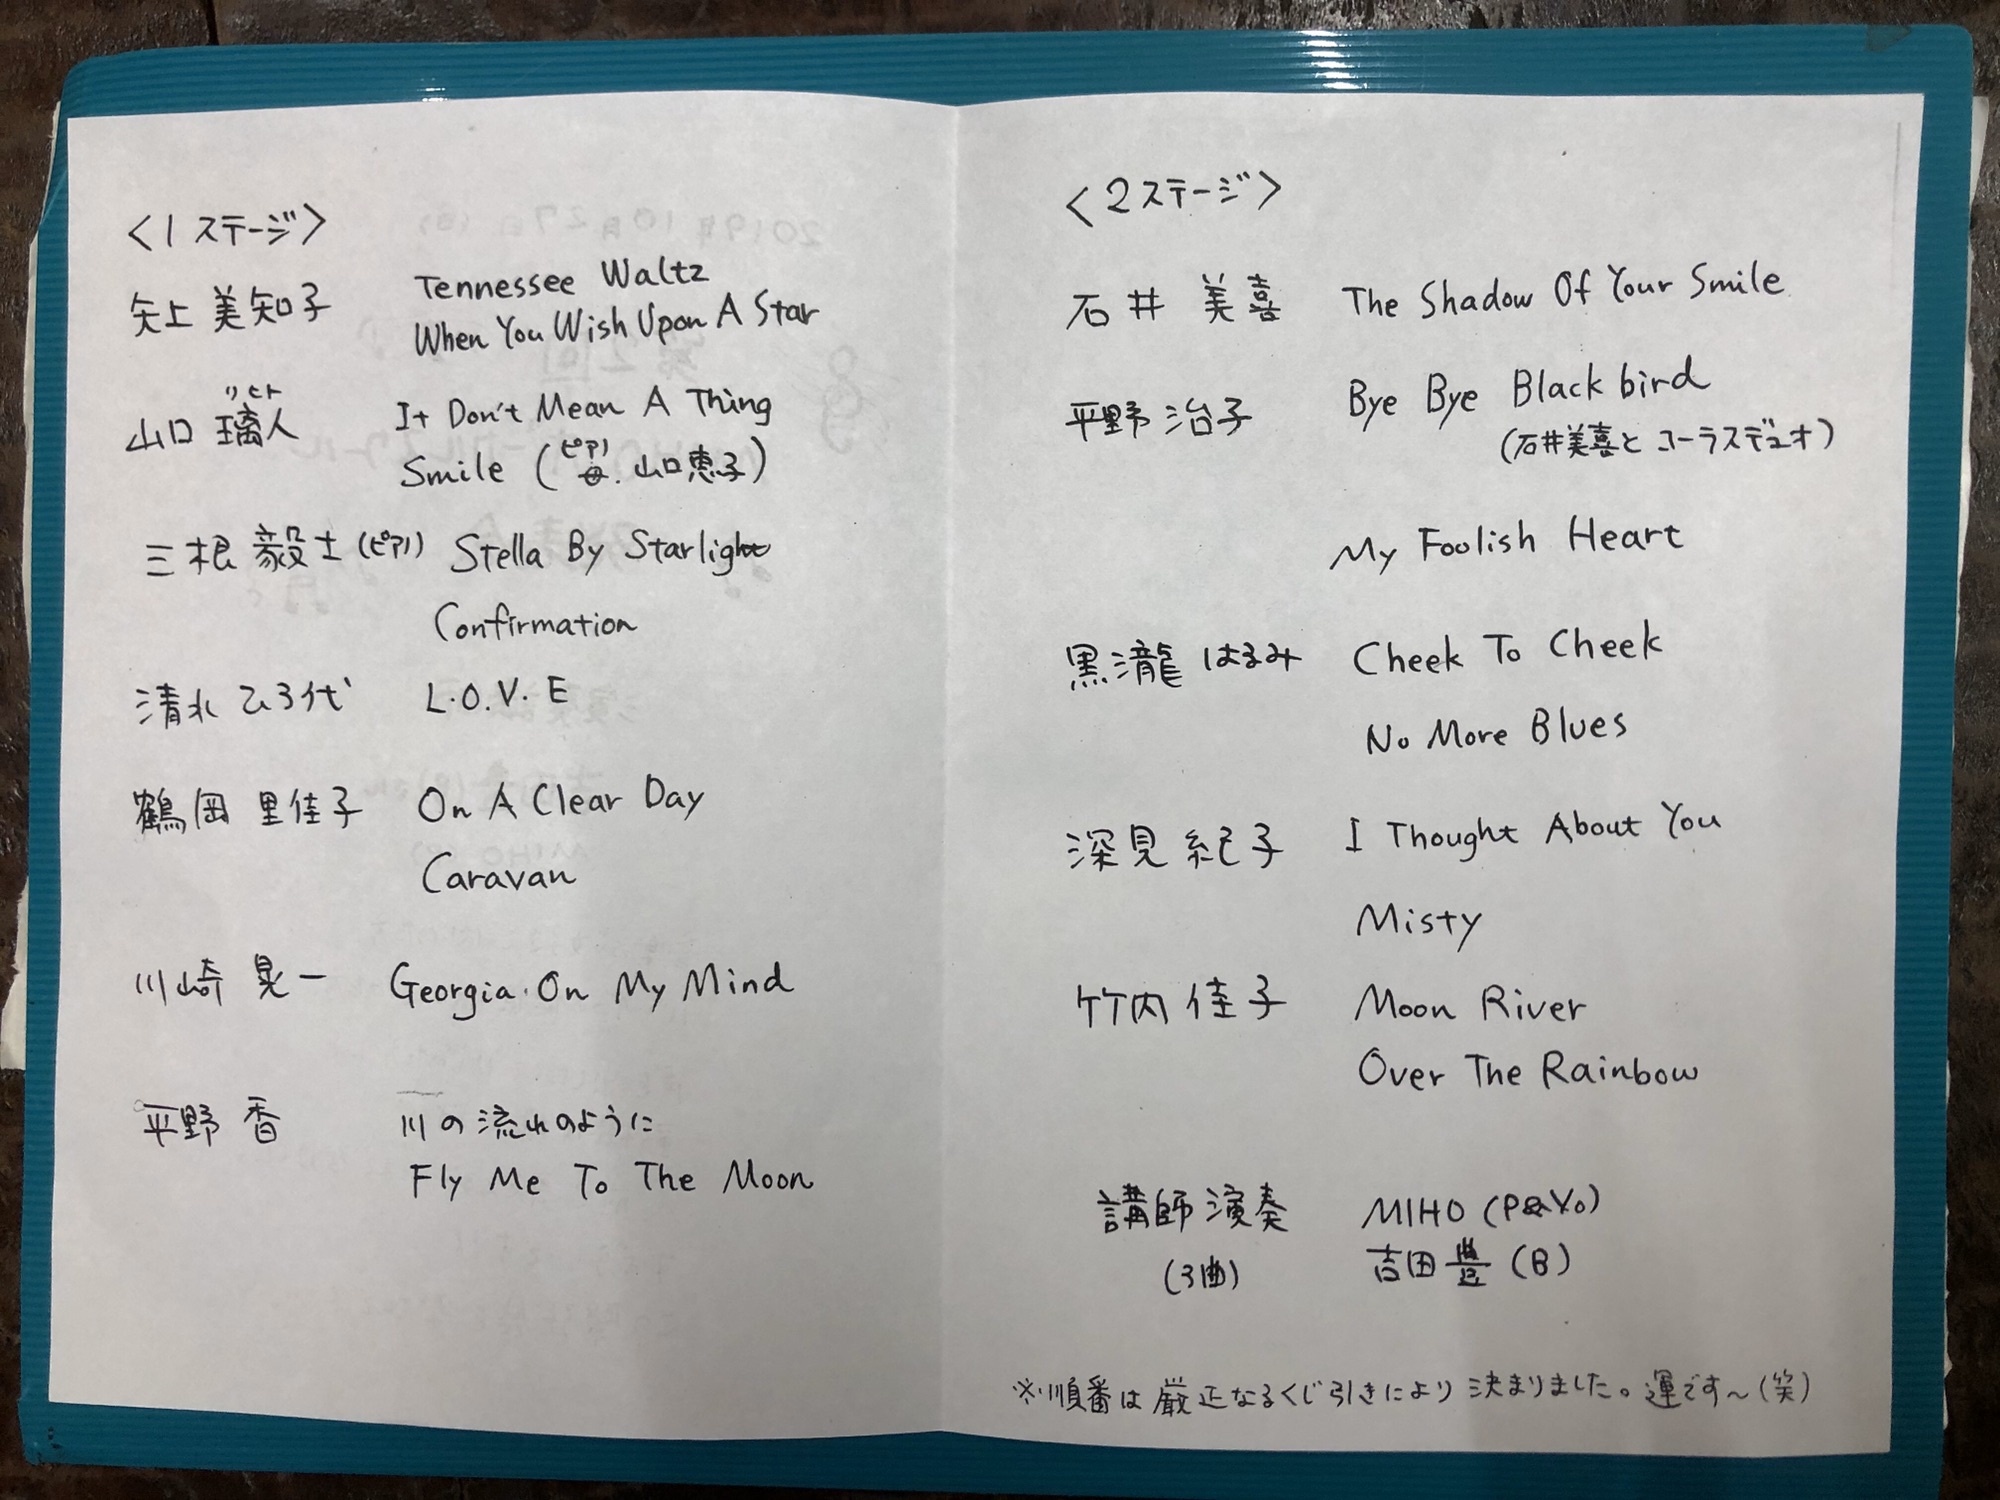 〈1ステージ〉
矢上 美知子 Tennessee Waltz
When You Wish Upon A Star
山口 璃人 It Don't Mean A Thing
リヒト
Smile (ピアノ 母. 山口恵子)
三根 毅士 (ピアノ) Stella By Starlight
Confirmation
清水 ひろ代 L.O.V.E
鶴岡 里佳子 On A Clear Day
Caravan
川崎 晃一 Georgia On My Mind
平野 香 川の流れのように
Fly Me To The Moon
〈2ステージ〉
石井 美喜 The Shadow Of Your Smile
平野 治子 Bye Bye Blackbird
(石井美喜と コーラスデュオ)
My Foolish Heart
黒瀧 はるみ Cheek To Cheek
No More Blues
深見 紀子 I Thought About You
Misty
竹内 佳子 Moon River
Over The Rainbow
講師演奏 MIHO (P&Vo)
(3曲) 吉田豊 (B)
※順番は厳正なるくじ引きにより決まりました。運です〜(笑)